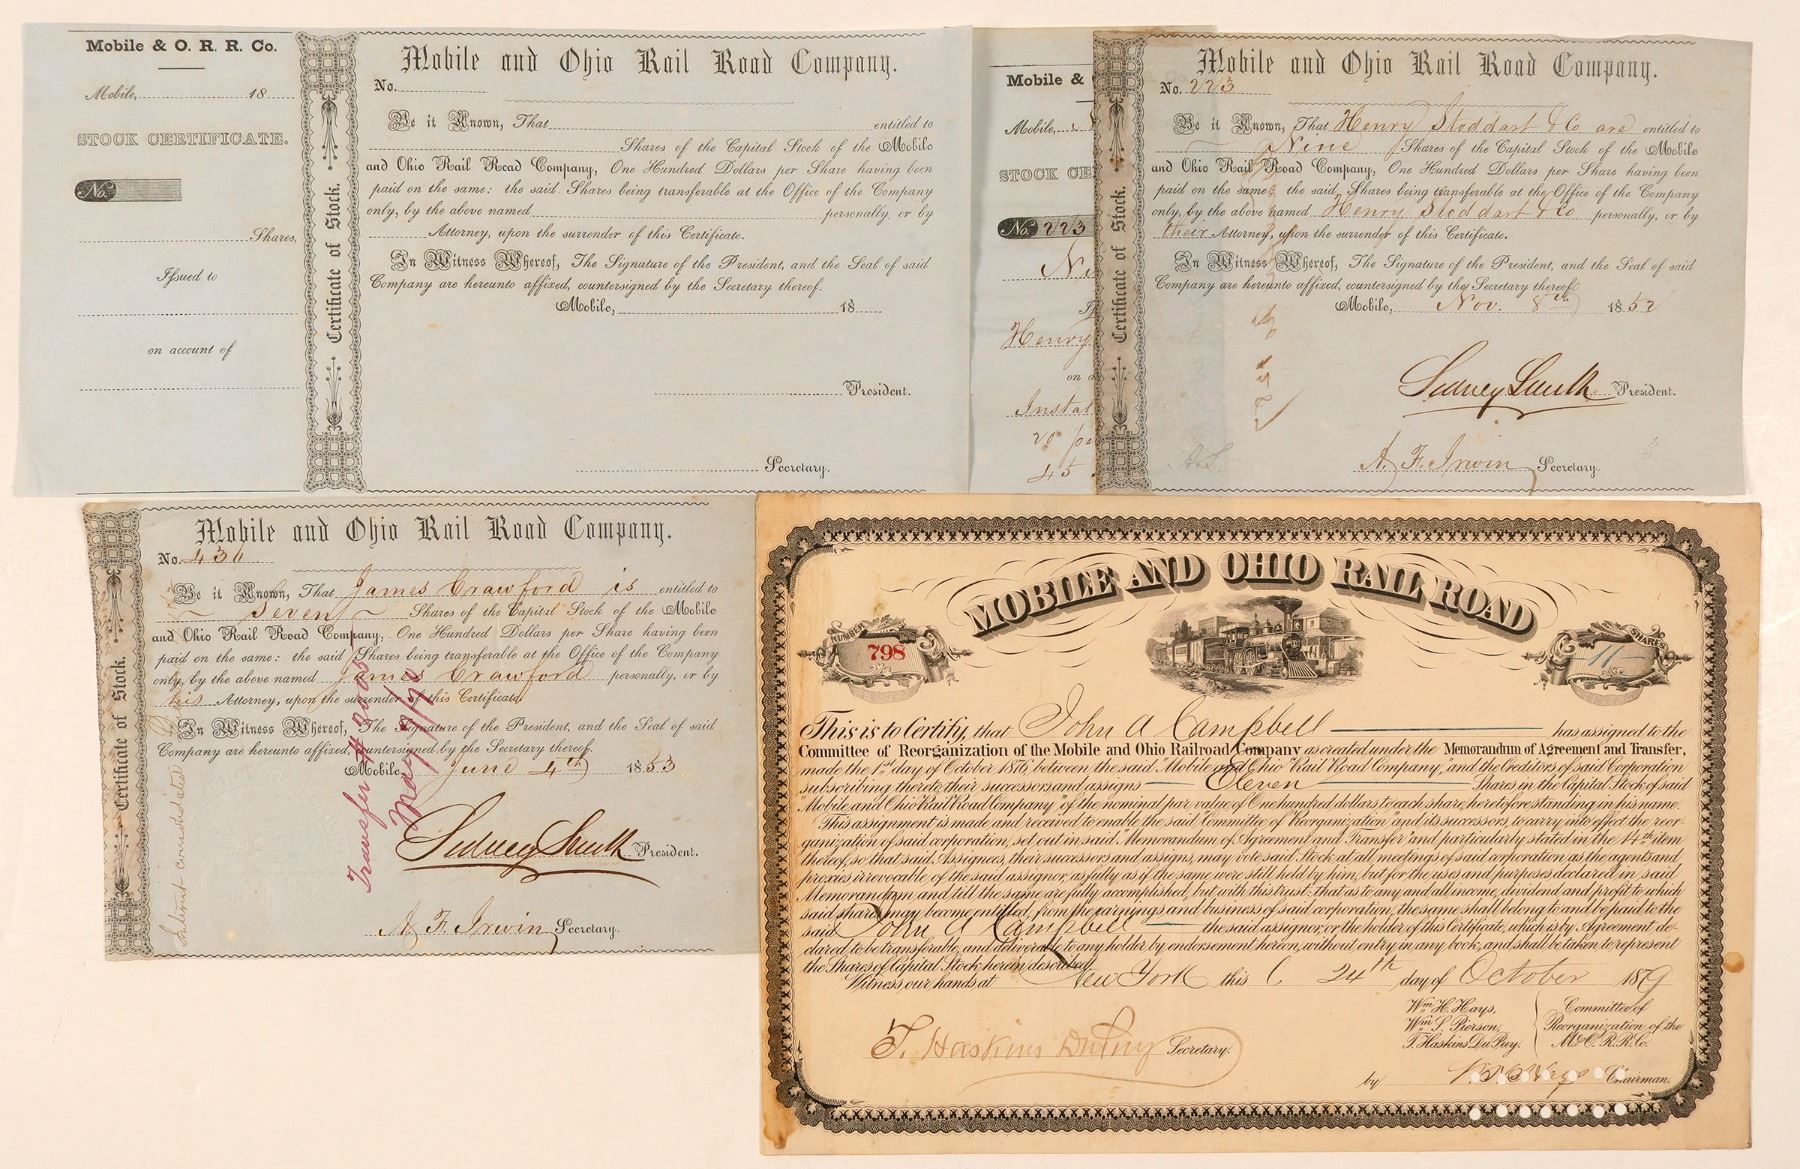 Mobile & O. R. R. Co.
Mobile, 18
STOCK CERTIFICATE.
No.
Shares,
Issued to
on account of
Certificate of Stock.
Mobile and Ohio Rail Road Company.
No.
Be it Known, That entitled to
Shares of the Capital Stock of the Mobile
and Ohio Rail Road Company, One Hundred Dollars per Share having been
paid on the same: the said Shares being transferable at the Office of the Company
only, by the above named personally or by
Attorney, upon the surrender of this Certificate.
In Witness Whereof, The Signature of the President, and the Seal of said
Company are hereunto affixed, countersigned by the Secretary thereof.
Mobile, 18
President.
Secretary.
Mobile &
Mobile,
STOCK CE
No. 223
Henry
on a
Instal
20
45
Certificate of Stock.
Mobile and Ohio Rail Road Company.
No. 223
Be it Known, That Henry Stoddart & Co are entitled to
Nine Shares of the Capital Stock of the Mobile
and Ohio Rail Road Company, One Hundred Dollars per Share having been
paid on the same: the said Shares being transferable at the Office of the Company
only, by the above named Henry Stoddart & Co personally, or by
their Attorney, upon the surrender of this Certificate.
In Witness Whereof, The Signature of the President, and the Seal of said
Company are hereunto affixed, countersigned by the Secretary thereof.
Mobile, Nov. 8th 1852
Sidney Smith President.
A. F. Irwin Secretary.
Certificate of Stock.
Mobile and Ohio Rail Road Company.
No. 436
Be it Known, That James Crawford is entitled to
Seven Shares of the Capital Stock of the Mobile
and Ohio Rail Road Company, One Hundred Dollars per Share having been
paid on the same: the said Shares being transferable at the Office of the Company
only, by the above named James Crawford personally, or by
his Attorney, upon the surrender of this Certificate.
In Witness Whereof, The Signature of the President, and the Seal of said
Company are hereunto affixed, countersigned by the Secretary thereof.
Mobile, June 4th 1853
Sidney Smith President.
A. F. Irwin Secretary.
Transfer # 3005
MOBILE AND OHIO RAIL ROAD
NUMBER
798
SHARES
11
This is to Certify, that John A Campbell has assigned to the
Committee of Reorganization of the Mobile and Ohio Railroad Company as created under the Memorandum of Agreement and Transfer,
made the 1st day of October 1876, between the said "Mobile and Ohio Rail Road Company," and the Creditors of said Corporation
subscribing thereto, their successors and assigns Eleven Shares in the Capital Stock of said
"Mobile and Ohio Rail Road Company" of the nominal par value of One hundred dollars to each share, heretofore standing in his name.
This assignment is made and received to enable the said "Committee of Reorganization" and its successors, to carry into effect the reor-
ganization of said corporation, set out in said "Memorandum of Agreement and Transfer" and particularly stated in the 14th item
thereof, so that said Assignees, their successors and assigns, may vote said Stock at all meetings of said corporation as the agents and
proxies irrevocable of the said assignor, as fully as if the same were still held by him, but for the uses and purposes declared in said
Memorandum, and till the same are fully accomplished, but with this trust: that as to any and all income, dividend and profit to which
said shares may become entitled, from the earnings and business of said corporation, the same shall belong to and be paid to the
said John A Campbell the said assignor, or the holder of this Certificate, which is by Agreement de-
clared to be transferable, and deliverable to any holder by endorsement hereon, without entry in any book, and shall be taken to represent
the Shares of Capital Stock herein described.
Witness our hands at New York this 24th day of October 1879
Wm H. Hays,
Wm S. Pierson,
T. Haskins Du Puy.
Committee of
Reorganization of the
M. & O. R. R. Co.
T. Haskins DuPuy Secretary.
by Chairman.